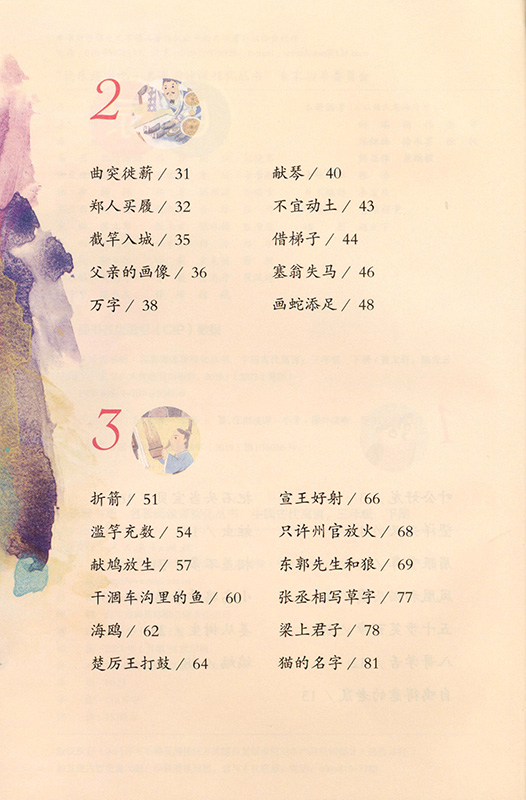 2
曲突徙薪 / 31
郑人买履 / 32
截竿入城 / 35
父亲的画像 / 36
万字 / 38
献琴 / 40
不宜动土 / 43
借梯子 / 44
塞翁失马 / 46
画蛇添足 / 48
3
折箭 / 51
滥竽充数 / 54
献鸠放生 / 57
干涸车沟里的鱼 / 60
海鸥 / 62
楚厉王打鼓 / 64
宣王好射 / 66
只许州官放火 / 68
东郭先生和狼 / 69
张丞相写草字 / 77
梁上君子 / 78
猫的名字 / 81